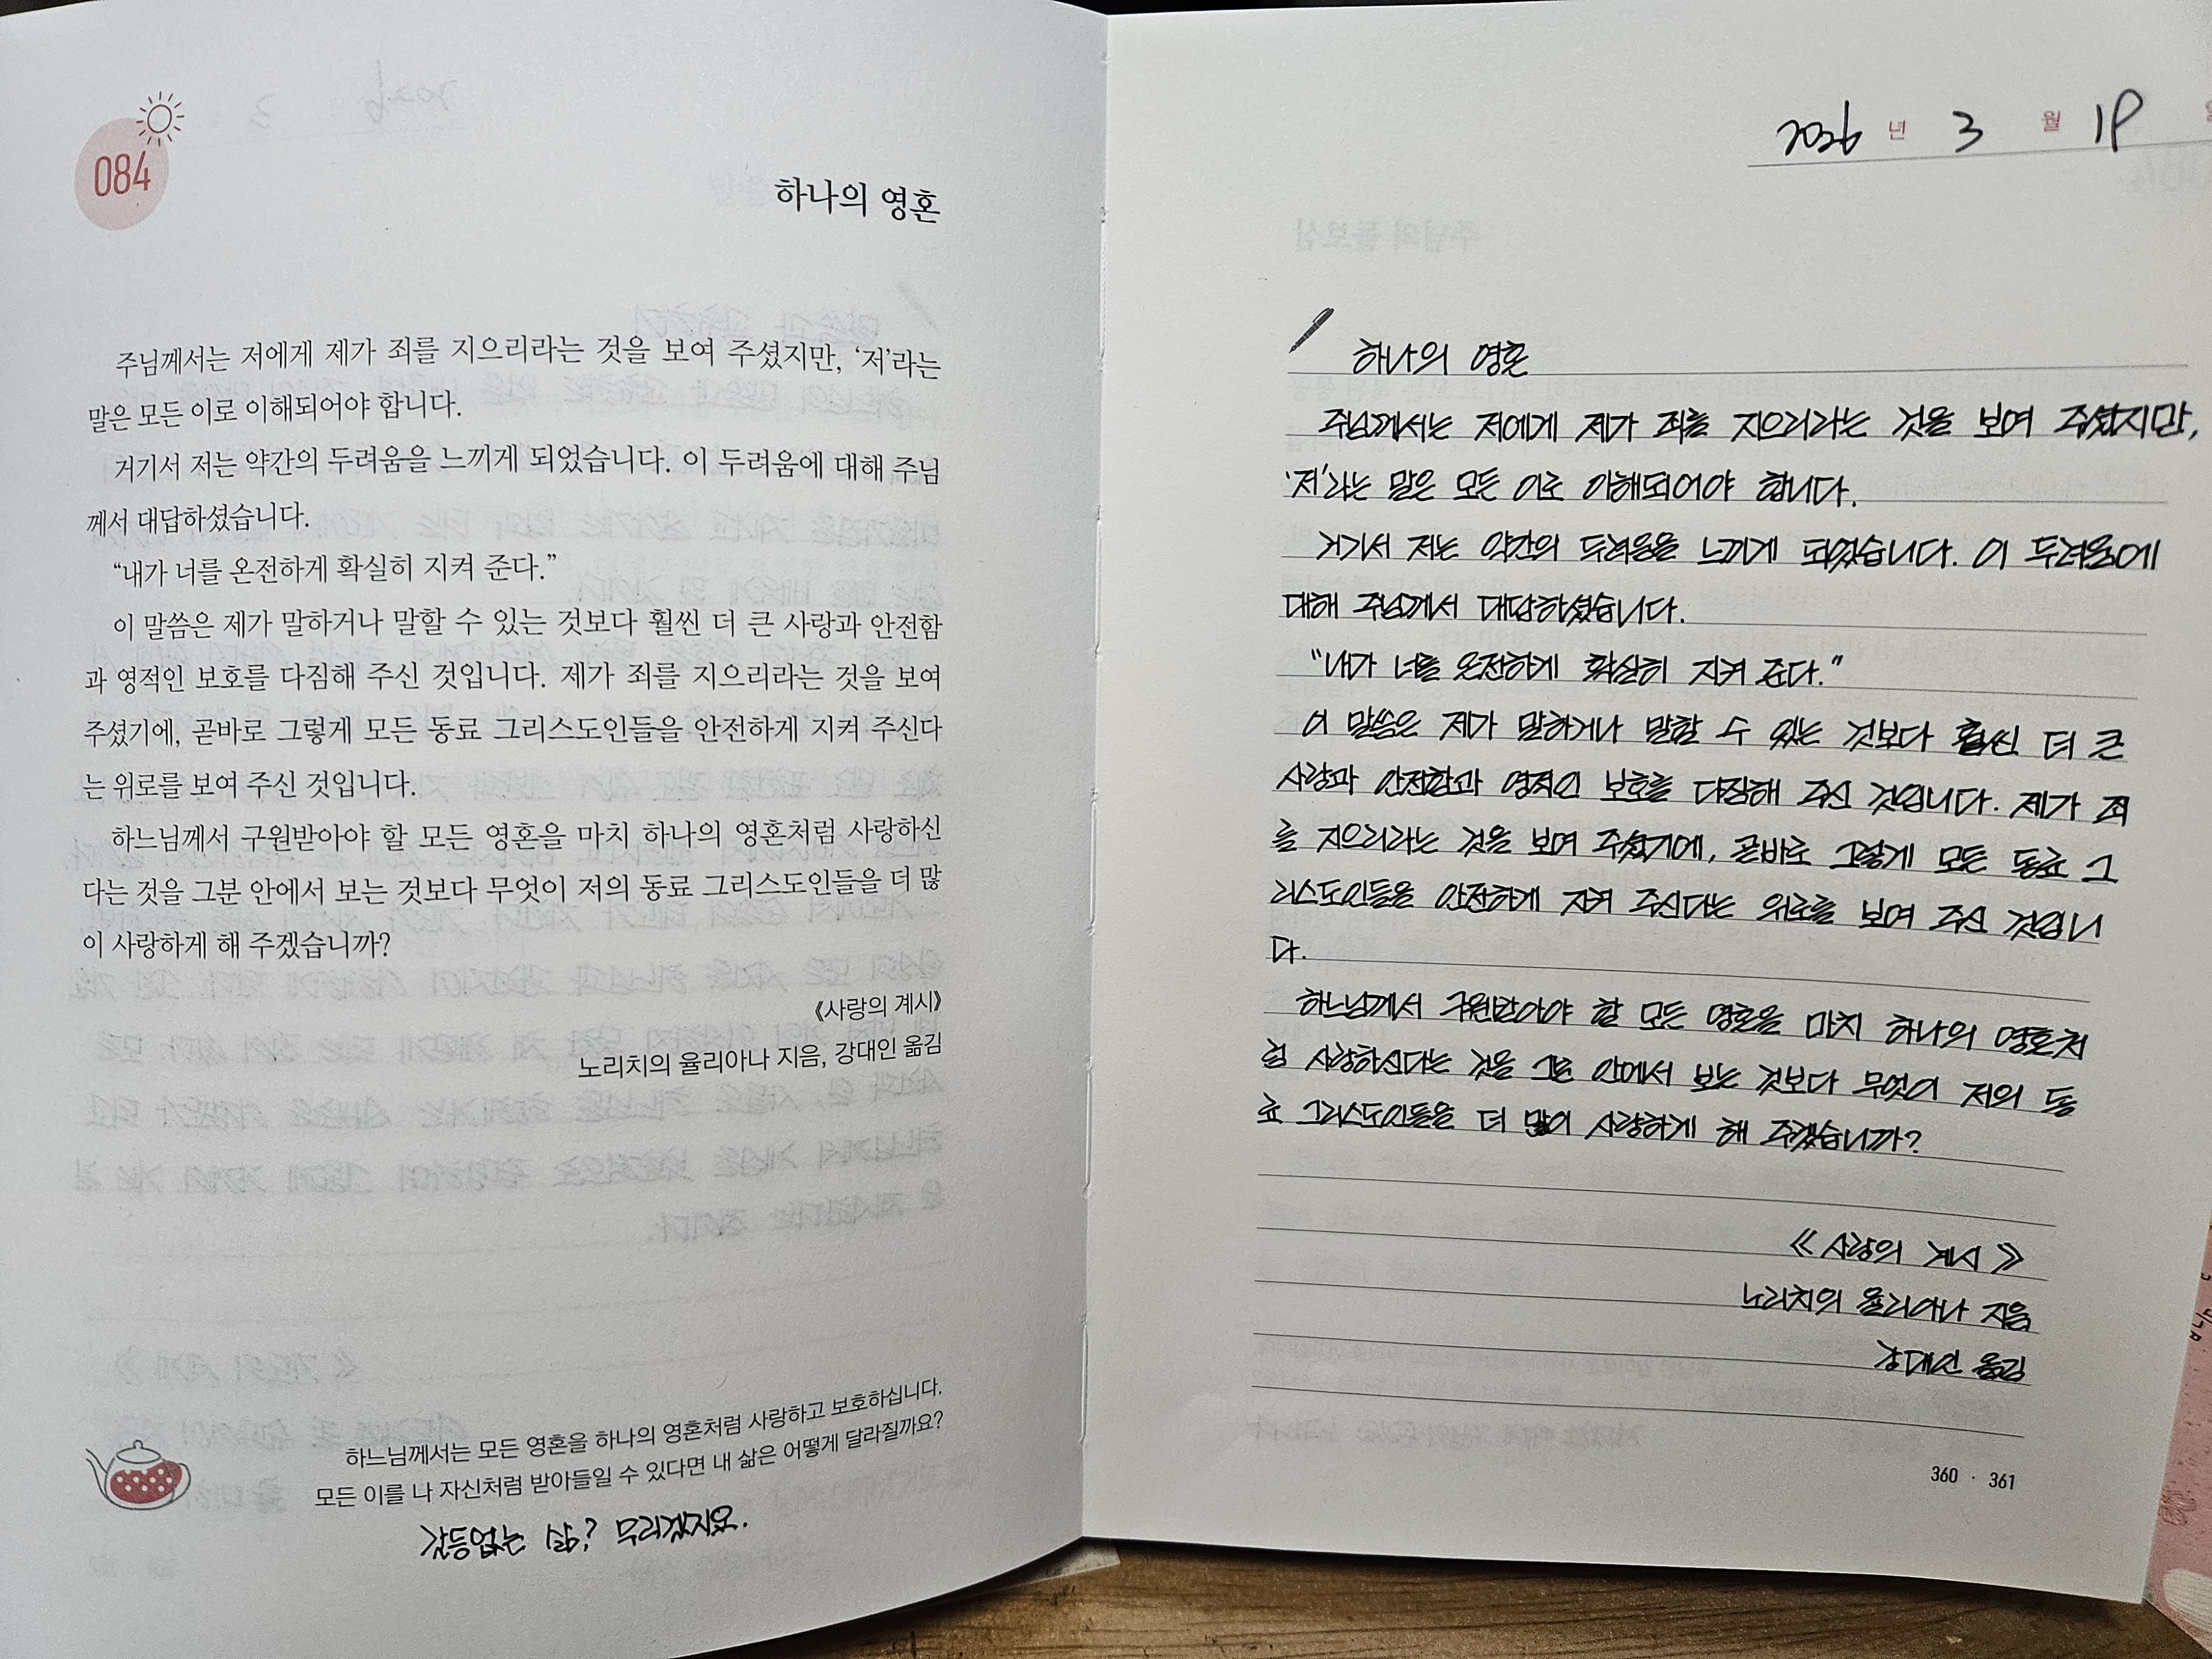 084
하나의 영혼
주님께서는 저에게 제가 죄를 지으리라는 것을 보여 주셨지만, ‘저’라는
말은 모든 이로 이해되어야 합니다.
거기서 저는 약간의 두려움을 느끼게 되었습니다. 이 두려움에 대해 주님
께서 대답하셨습니다.
“내가 너를 온전하게 확실히 지켜 준다.”
이 말씀은 제가 말하거나 말할 수 있는 것보다 훨씬 더 큰 사랑과 안전함
과 영적인 보호를 다짐해 주신 것입니다. 제가 죄를 지으리라는 것을 보여
주셨기에, 곧바로 그렇게 모든 동료 그리스도인들을 안전하게 지켜 주신다
는 위로를 보여 주신 것입니다.
하느님께서 구원받아야 할 모든 영혼을 마치 하나의 영혼처럼 사랑하신
다는 것을 그분 안에서 보는 것보다 무엇이 저의 동료 그리스도인들을 더 많
이 사랑하게 해 주겠습니까?
《사랑의 계시》
노리치의 율리아나 지음, 강대인 옮김
하느님께서는 모든 영혼을 하나의 영혼처럼 사랑하고 보호하십니다.
모든 이를 나 자신처럼 받아들일 수 있다면 내 삶은 어떻게 달라질까요?
갈등없는 삶? 무리겠지요.
2026 년 3 월 19
하나의 영혼
주님께서는 저에게 제가 죄를 지으리라는 것을 보여 주셨지만,
‘저’라는 말은 모든 이로 이해되어야 합니다.
거기서 저는 약간의 두려움을 느끼게 되었습니다. 이 두려움에
대해 주님께서 대답하셨습니다.
“내가 너를 온전하게 확실히 지켜 준다.”
이 말씀은 제가 말하거나 말할 수 있는 것보다 훨씬 더 큰
사랑과 안전함과 영적인 보호를 다짐해 주신 것입니다. 제가 죄
를 지으리라는 것을 보여 주셨기에, 곧바로 그렇게 모든 동료 그
리스도인들을 안전하게 지켜 주신다는 위로를 보여 주신 것입니
다.
하느님께서 구원받아야 할 모든 영혼을 마치 하나의 영혼처
럼 사랑하신다는 것을 그분 안에서 보는 것보다 무엇이 저의 동
료 그리스도인들을 더 많이 사랑하게 해 주겠습니까?
《사랑의 계시》
노리치의 율리아나 지음
강대인 옮김
360 · 361